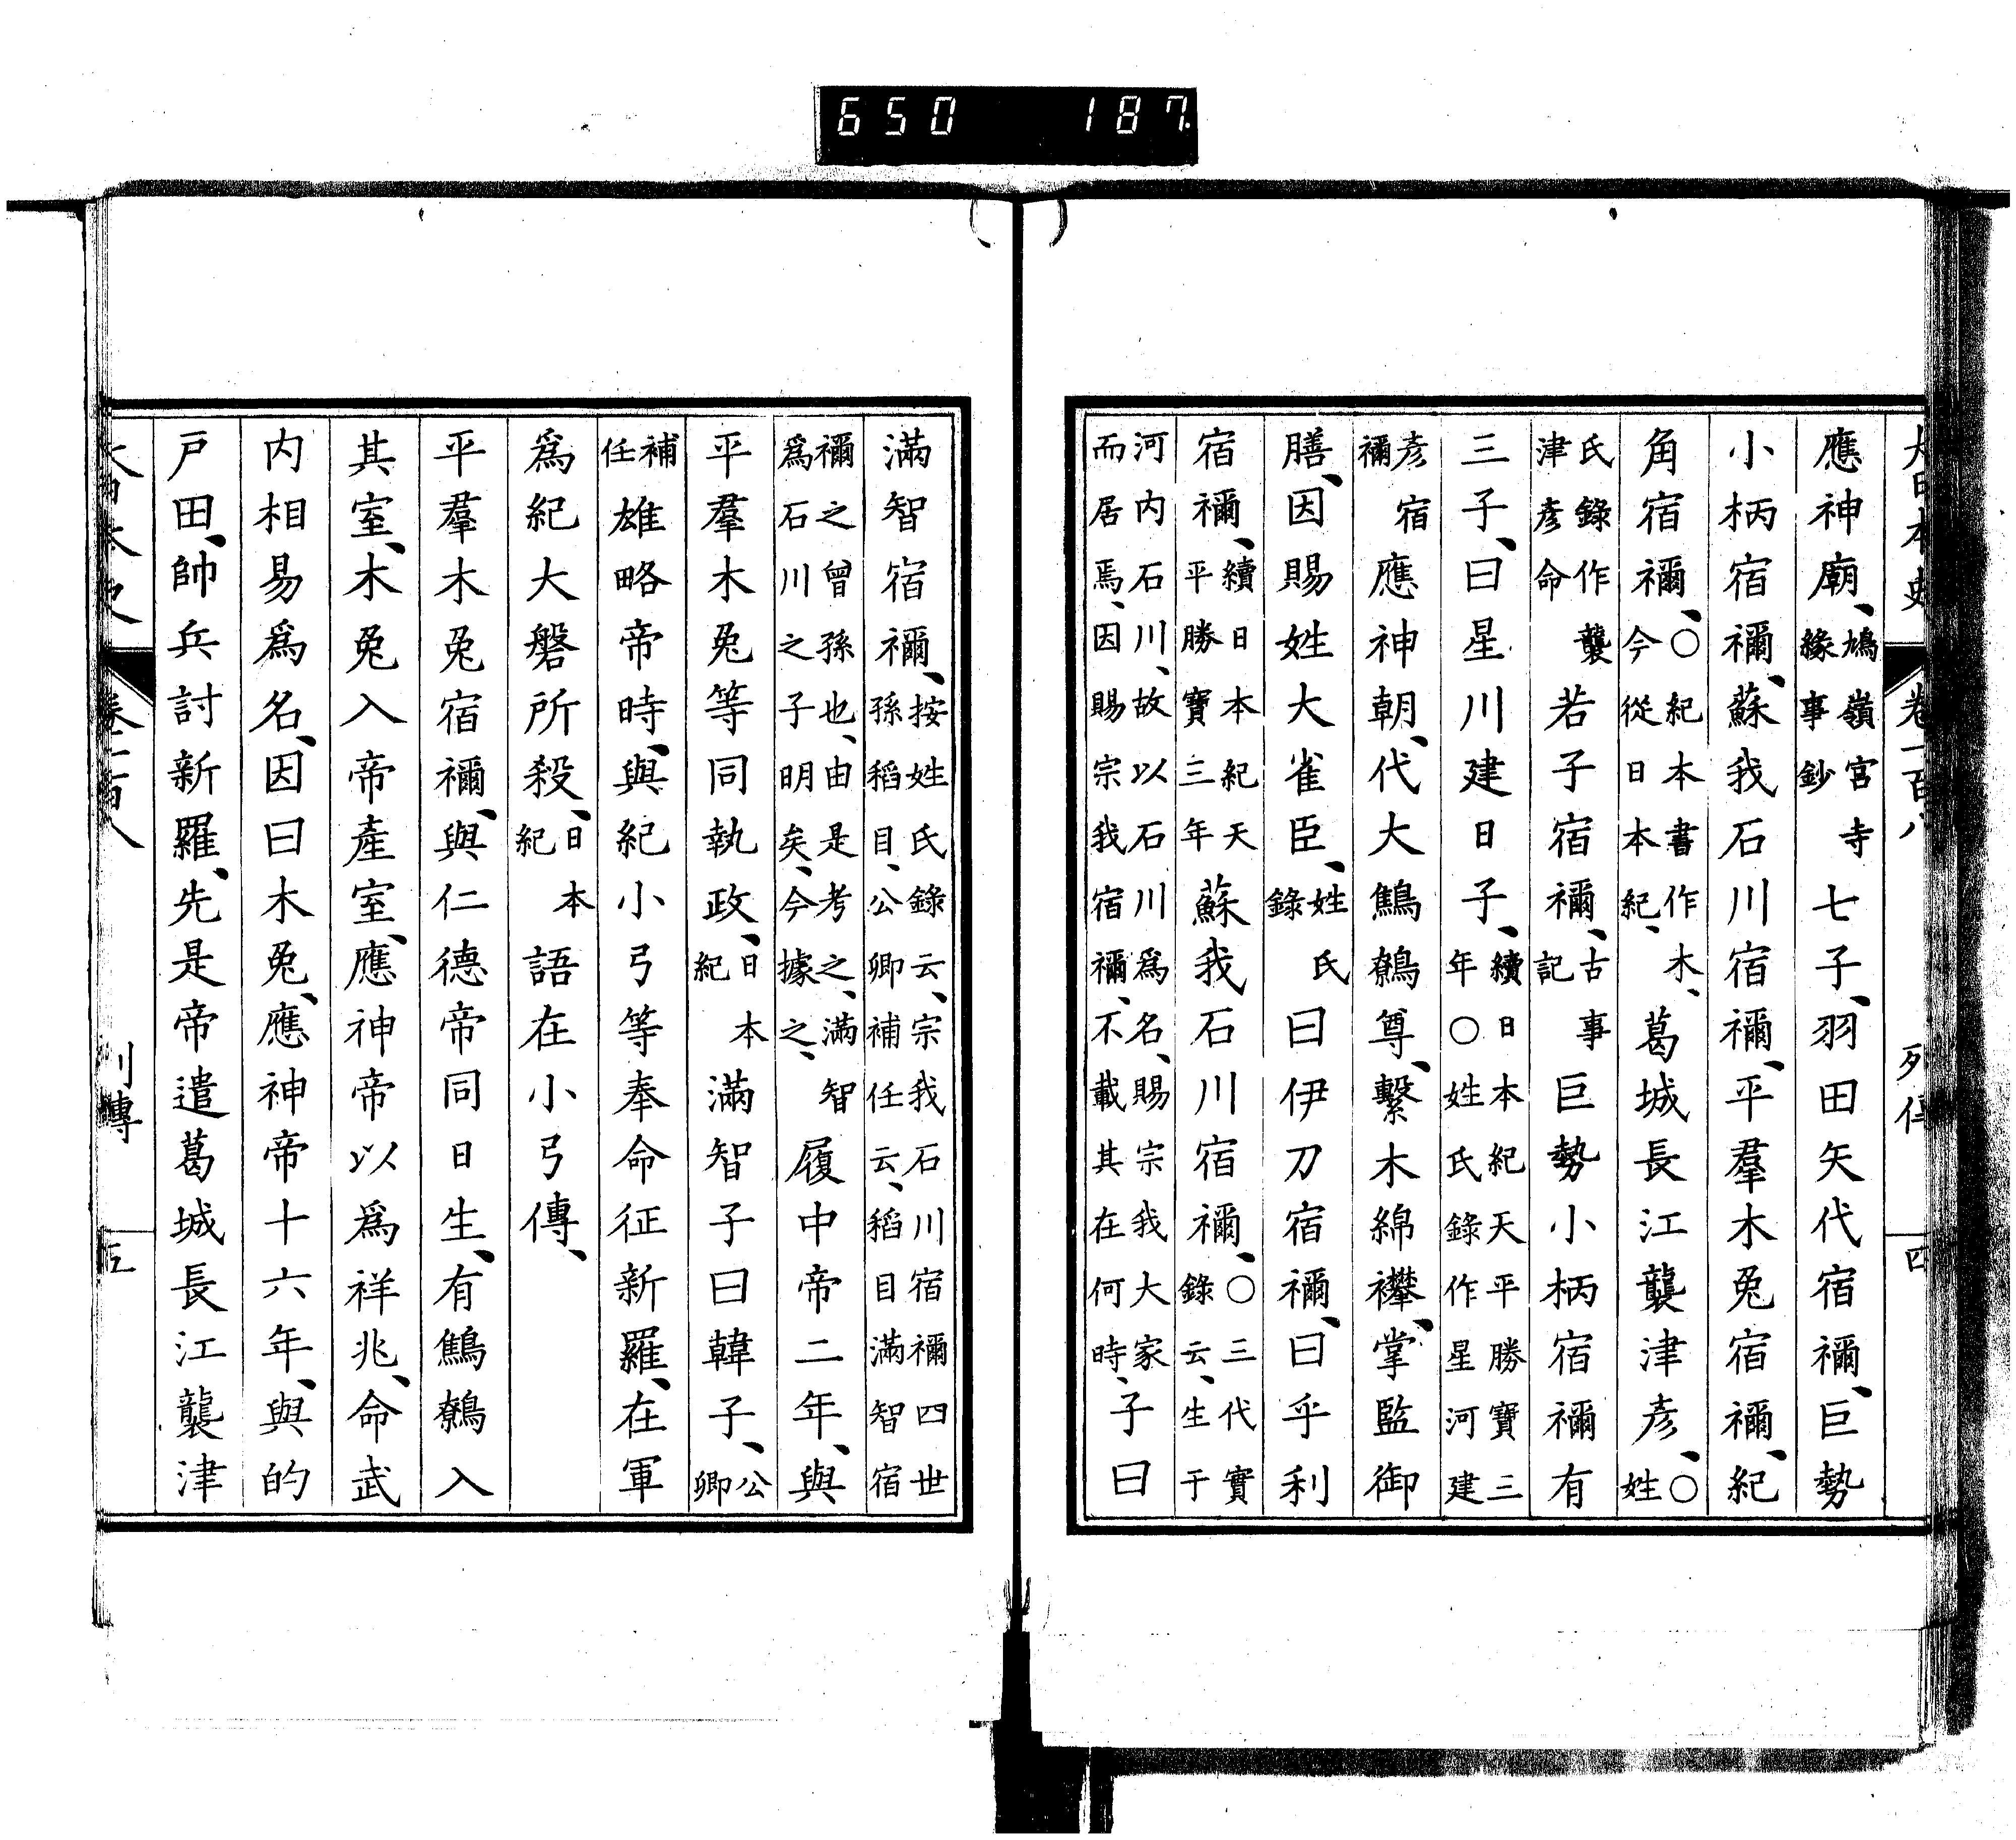 650 187
大日本史 卷一百八 列傳 四
應神廟、鳩嶺宮寺緣事鈔七子、羽田矢代宿禰、巨勢
小柄宿禰、蘇我石川宿禰、平羣木兔宿禰、紀
角宿禰、〇紀本書作木、今從日本紀、葛城長江襲津彥、〇姓
氏錄作襲津彥命若子宿禰、古事記巨勢小柄宿禰有
三子、曰星川建日子、續日本紀天平勝寶三年〇姓氏錄作星河建
彥宿禰應神朝、代大鷦鷯尊、繫木綿襷、掌監御
膳、因賜姓大雀臣、姓氏錄曰伊刀宿禰、曰乎利
宿禰、續日本紀天平勝寶三年蘇我石川宿禰、〇三代實錄云、生于
河內石川、故以石川爲名、賜宗我大家而居焉、因賜宗我宿禰、不載其在何時、子曰
滿智宿禰、按姓氏錄云、宗我石川宿禰四世孫稻目、公卿補任云、稻目滿智宿
禰之曾孫也、由是考之、滿智爲石川之子明矣、今據之、履中帝二年、與
平羣木兔等同執政、日本紀滿智子曰韓子、公卿
補任雄略帝時、與紀小弓等奉命征新羅、在軍
爲紀大磐所殺、日本紀語在小弓傳、
平羣木兔宿禰、與仁德帝同日生、有鷦鷯入
其室、木兔入帝產室、應神帝以爲祥兆、命武
內相易爲名、因曰木兔、應神帝十六年、與的
戸田、帥兵討新羅、先是帝遣葛城長江襲津
大日本史 卷一百八 列傳 五